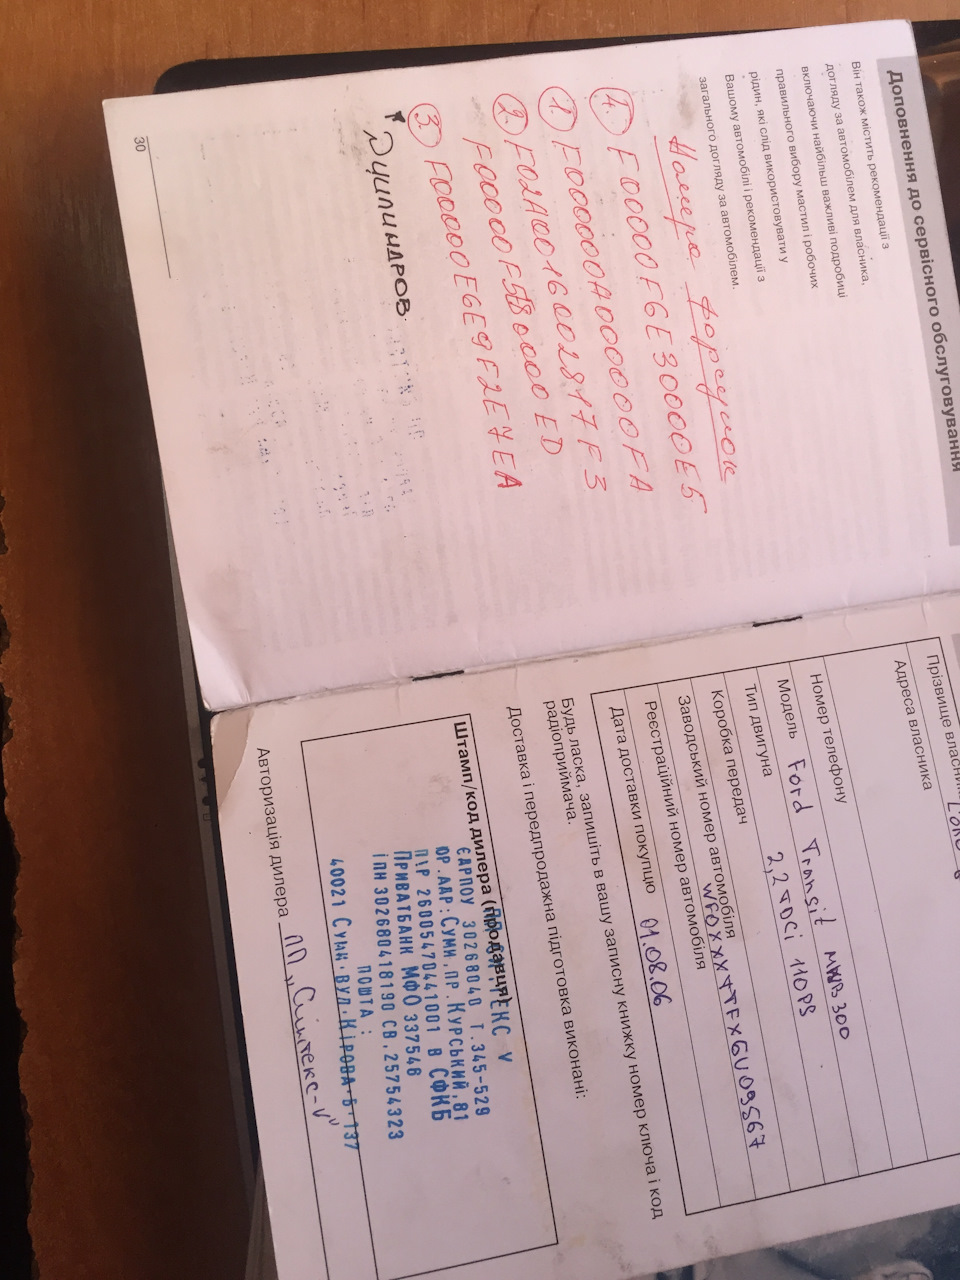 Доповнення до сервісного обслуговування
Він також містить рекомендації з
догляду за автомобілем для власника,
включаючи найбільш важливі подробиці
правильного вибору мастил і робочих
рідин, які слід використовувати у
Вашому автомобілі і рекомендації з
загального догляду за автомобілем.
Номера форсунок
4. F00000F6E30000E5
1. F000000A000000FA
2. F02A0016002817F3
F00000F580000ED
3. F00000E6E9F2E7EA
ЦИЛИНДРОВ.
30
Прізвище власника
Адреса власника
Номер телефону
Модель Ford Transit MWB 300
Тип двигуна 2,2 TDCi 110PS
Коробка передач
Заводський номер автомобіля WF0XXXTTFXGU09567
Реєстраційний номер автомобіля
Дата доставки покупцю 01.08.06
Будь ласка, запишіть в вашу записну книжку номер ключа і код
радіоприймача.
Доставка і передпродажна підготовка виконані:
Штамп/код дилера (продавця)
ЄДРПОУ 30268040 Т.345-529
ЮР.АДР:СУМИ,ПР.КУРСЬКИЙ,81
П\Р 26005470441001 В СФКБ
ПРИВАТБАНК МФО 337546
ІПН 302680418190 СВ,25754323
ПОШТА :
40021 СУМИ,ВУЛ.КІРОВА,Б.137
Авторизація дилера ПП „Сінтекс-V"